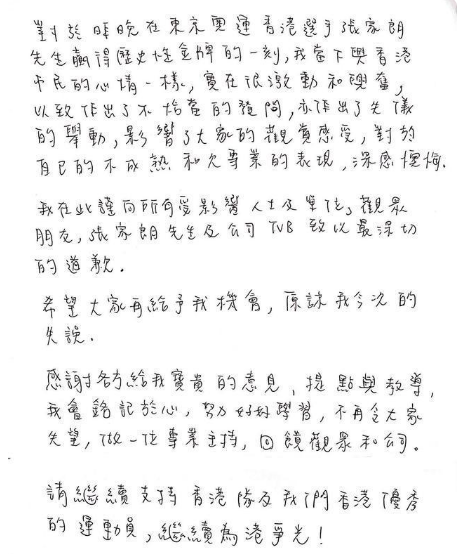 對於昨晚在東京奧運香港選手張家朗
先生贏得歷史性金牌的一刻,我當下與香港
市民的心情一樣,實在很激動和興奮,
以致作出了不恰當的發問,亦作出了失儀
的舉動,影響了大家的觀賞感受,對於
自己的不成熟和欠專業的表現,深感懊悔.
我在此謹向所有受影響人士及單位,觀眾
朋友,張家朗先生及公司 TVB 致以最深切
的道歉.
希望大家再給予我機會,原諒我今次的
失誤.
感謝各方給我寶貴的意見,提點與教導,
我會銘記於心,努力好好學習,不再令大家
失望,做一位專業主持,回饋觀眾和公司。
請繼續支持香港隊及我們香港優秀
的運動員,繼續為港爭光!